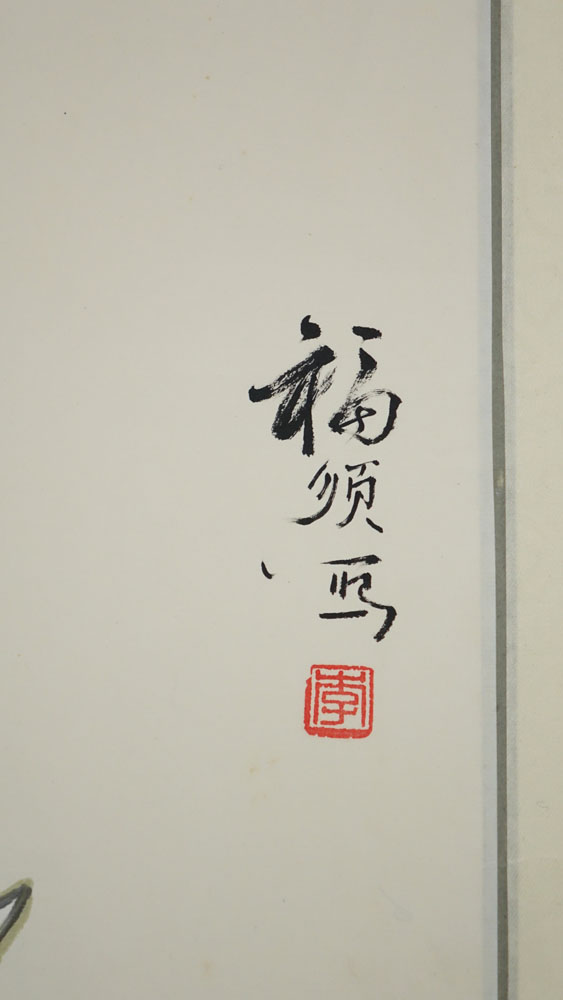 福须写
李